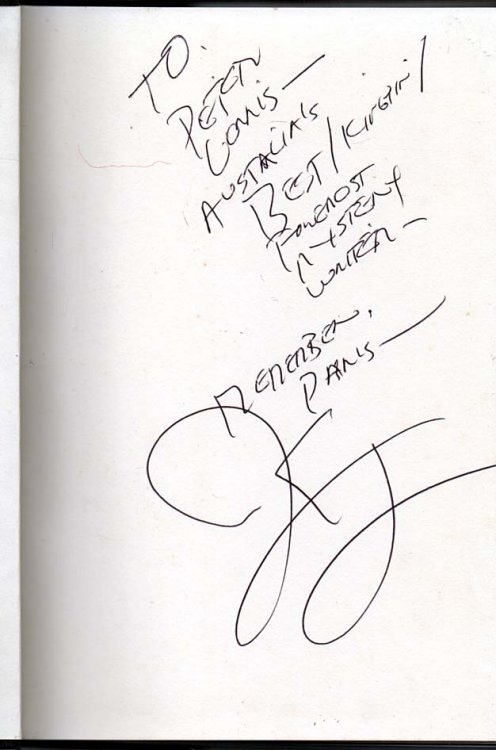 TO.
PETER
CORRIS—
AUSTRALIA'S
BEST/KINGPIN/
FOREMOST
MYSTERY
WRITER—
REMEMBER,
PARIS—